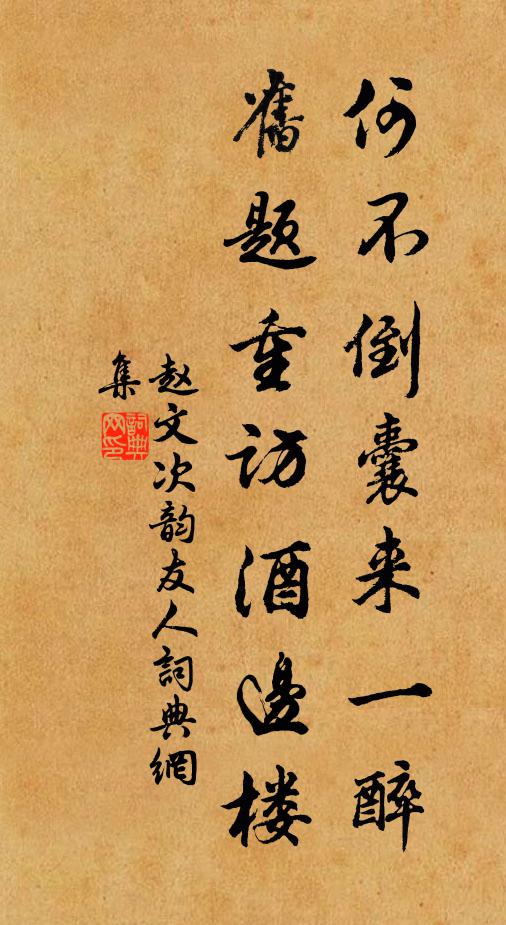 何不倒囊来一醉
旧题重访酒邊楼
赵文次韵友人詞典網
集
詞典网印